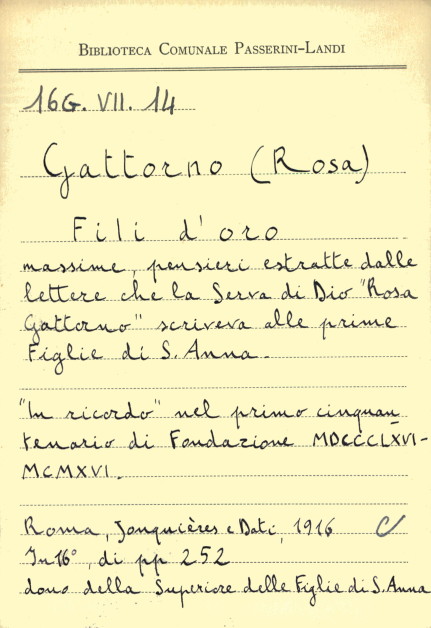 BIBLIOTECA COMUNALE PASSERINI-LANDI
16G. VII. 14
Gattorno (Rosa)
Fili d'oro
massime, pensieri estratte dalle
lettere che la Serva di Dio "Rosa
Gattorno" scriveva alle prime
Figlie di S. Anna.
"In ricordo" nel primo cinquan
tenario di Fondazione MDCCCLXVI-
MCMXVI.
Roma, Jonquières e Dati, 1916
In 16°, di pp 252
dono della Superiore delle Figlie di S. Anna